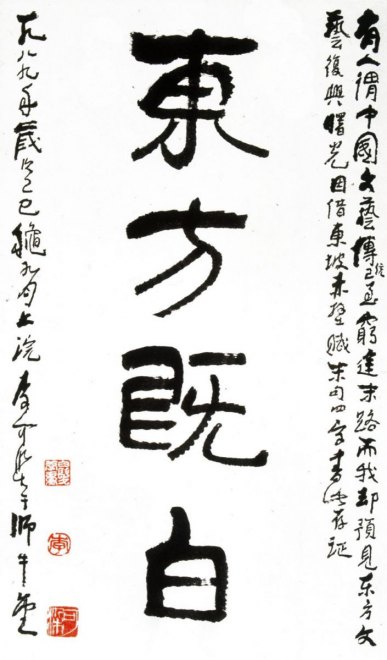 有人謂中國文藝傳統已至窮途末路而我却預見东方文
藝復興曙光因借東坡赤壁賦末句四字書此存证
東方既白
一九八九年歲次己巳龝九月上浣李可染于師牛堂
李
可染